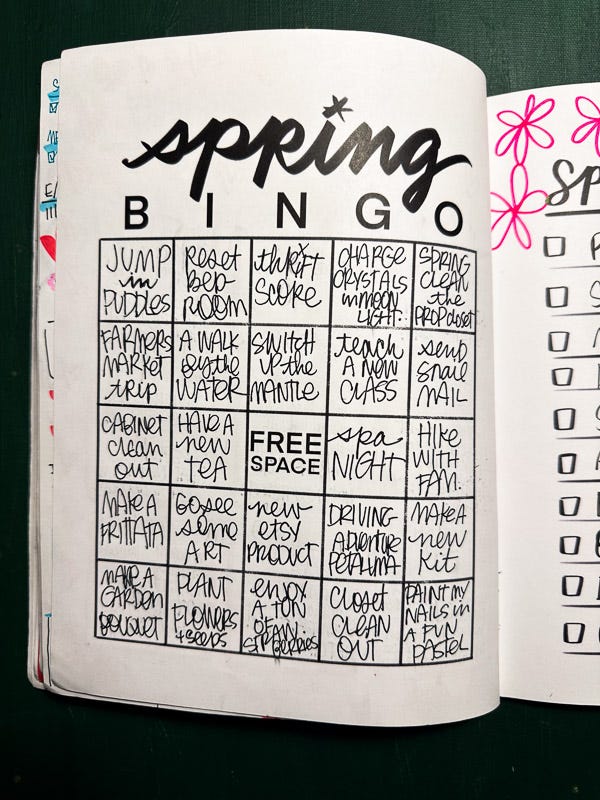 spring
BINGO
JUMP
in
PUDDLES
Reset
BED-
ROOM
thrift
SCORE
CHARGE
CRYSTALS
in MOON
LIGHT.
SPRING
CLEAN
the
PROP closet
FARMERS
MARKET
trip
A WALK
by the
WATER
SWITCH
UP the
MANTLE
teach
A NEW
CLASS
send
snail
MAIL
CABINET
clean
out
HAVE A
new
TEA
FREE
SPACE
spa
NIGHT
HIKE
WITH
FAM.
MAKE A
FRITTATA
GO see
some
ART
new
etsy
PRODUCT
DRIVING
ADVENTURE
PETALUMA
MAKE A
new
Kit
MAKE A
GARDEN
BOUQUET
PLANT
FLOWERS
+ SeeDS
enjoy
A TON
OF
CLOSET
CLEAN
OUT
PAINT MY
NAILS in
A FUN
PASTEL
SP